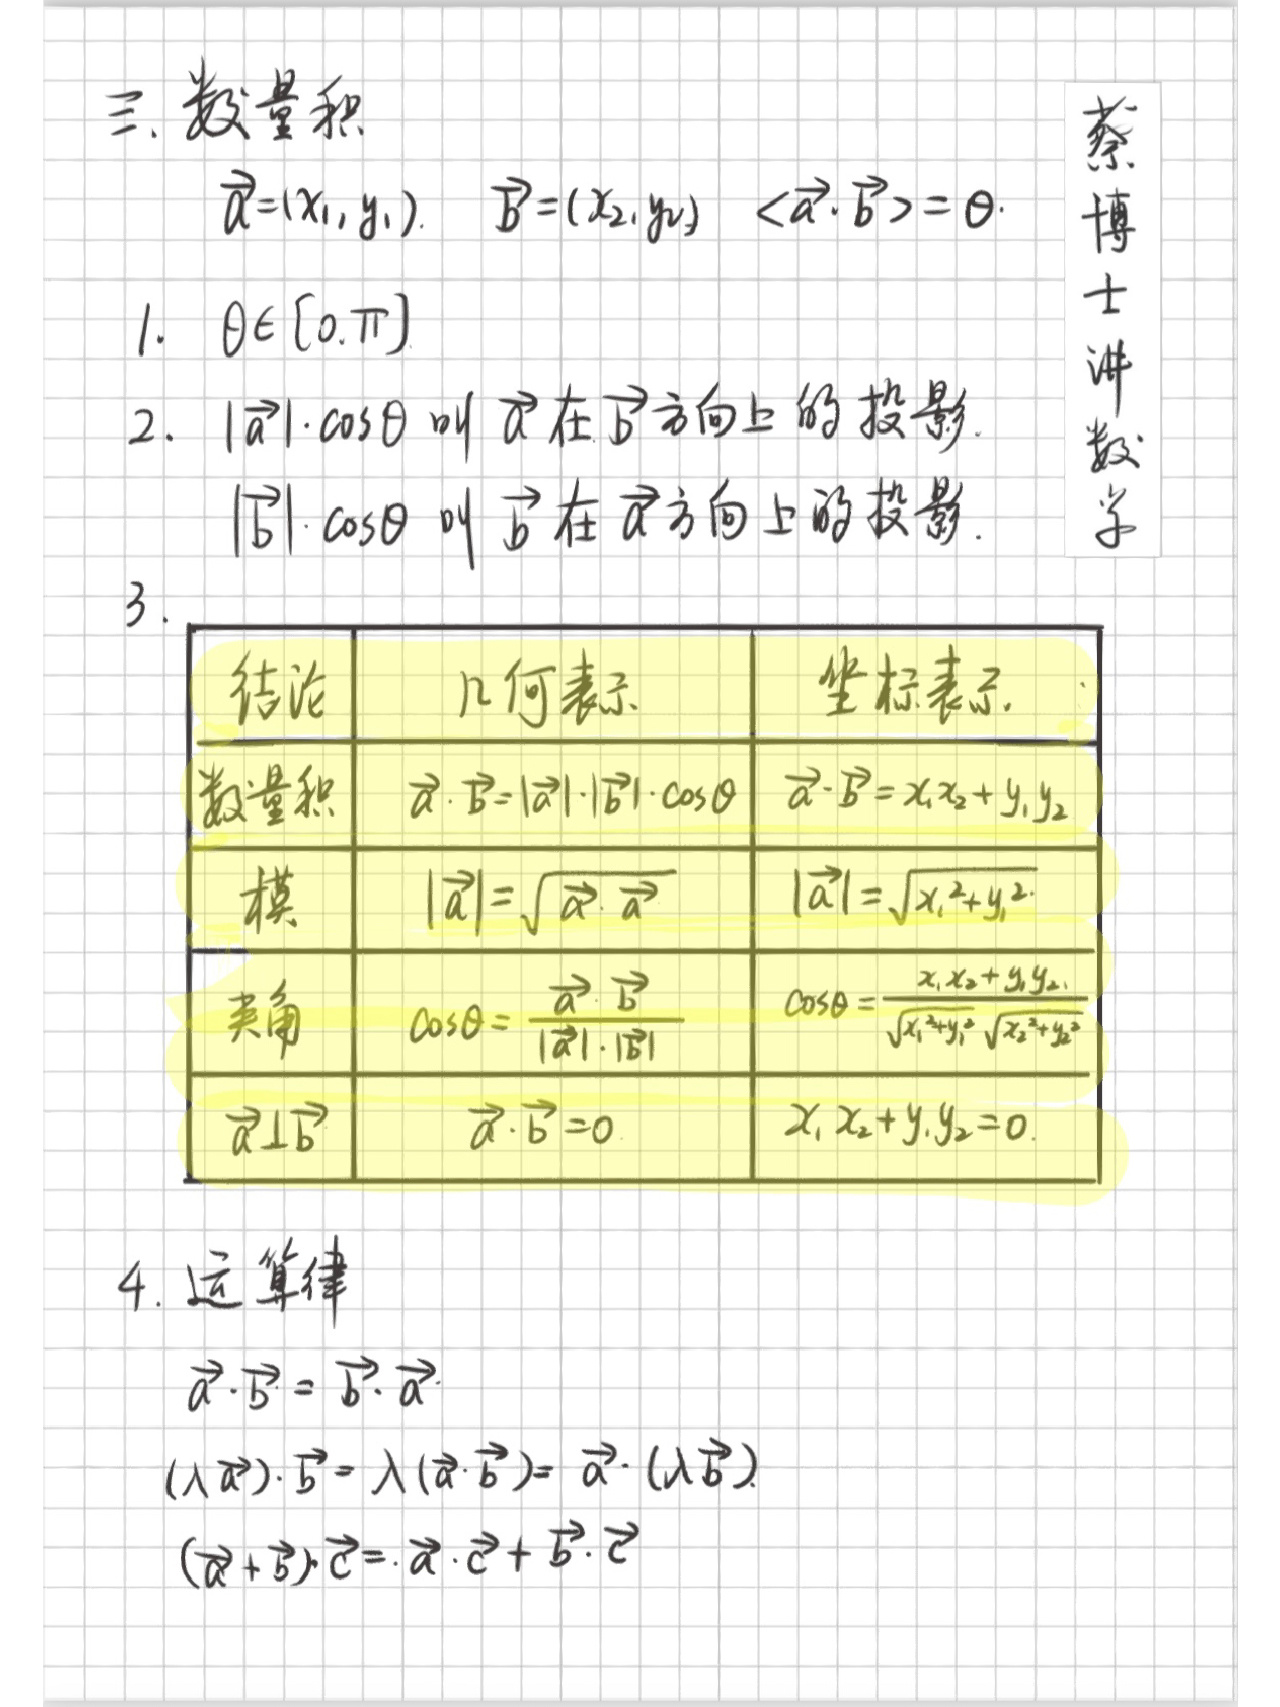 三、数量积
a⃗=(x₁,y₁). b⃗=(x₂,y₂) <a⃗·b⃗>=θ.
1. θ∈[0.π]
2. |a⃗|·cosθ 叫 a⃗ 在 b⃗ 方向上的投影.
|b⃗|·cosθ 叫 b⃗ 在 a⃗ 方向上的投影.
3.
结论 几何表示 坐标表示.
数量积 a⃗·b⃗=|a⃗|·|b⃗|·cosθ a⃗·b⃗=x₁x₂+y₁y₂
模 |a⃗|=√(a⃗·a⃗) |a⃗|=√(x₁²+y₁²)
夹角 cosθ=(a⃗·b⃗)/(|a⃗|·|b⃗|) cosθ=(x₁x₂+y₁y₂)/(√(x₁²+y₁²) √(x₂²+y₂²))
a⃗⊥b⃗ a⃗·b⃗=0 x₁x₂+y₁y₂=0.
4. 运算律
a⃗·b⃗=b⃗·a⃗
(λa⃗)·b⃗=λ(a⃗·b⃗)=a⃗·(λb⃗)
(a⃗+b⃗)·c⃗=a⃗·c⃗+b⃗·c⃗
蔡博士讲数学